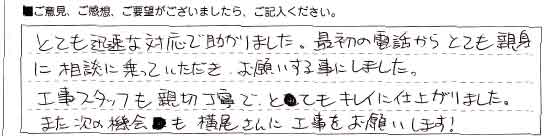 ■ご意見、ご感想、ご要望がございましたら、ご記入ください。
とても迅速な対応で助かりました。最初の電話からとても親身
に相談に乗っていただき、お願いする事にしました。
工事スタッフも親切丁寧で、とてもキレイに仕上がりました。
また次の機会も横尾さんに工事をお願いします!